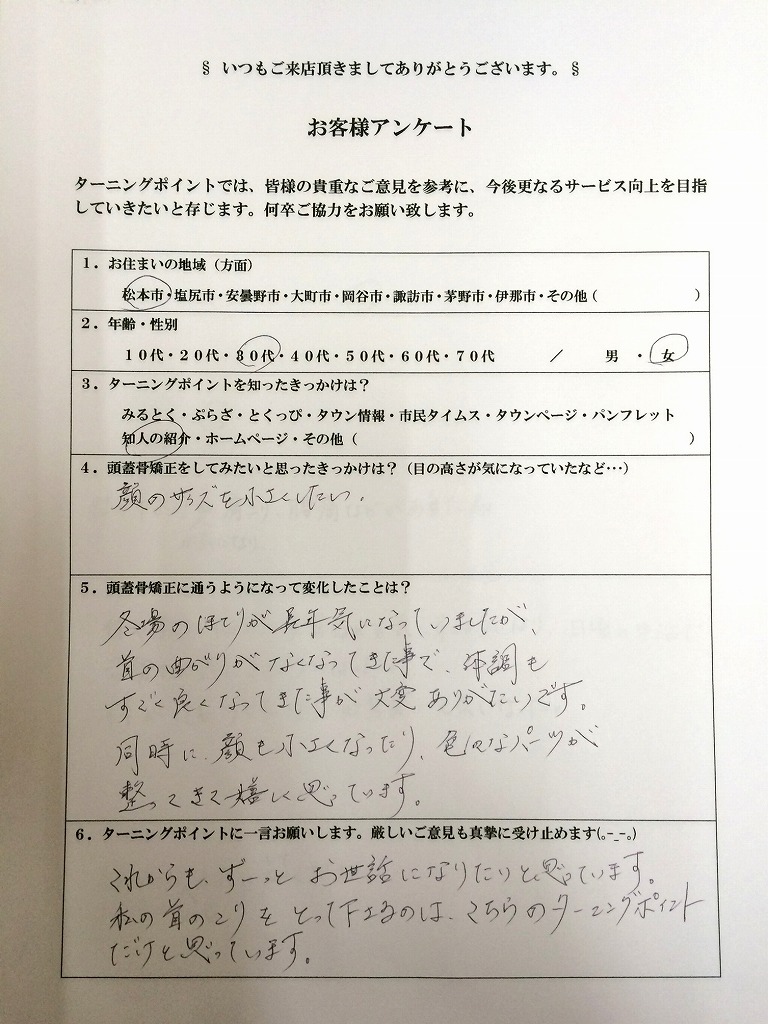 § いつもご来店頂きましてありがとうございます。§
お客様アンケート
ターニングポイントでは、皆様の貴重なご意見を参考に、今後更なるサービス向上を目指
していきたいと存じます。何卒ご協力をお願い致します。
1．お住まいの地域（方面）
松本市・塩尻市・安曇野市・大町市・岡谷市・諏訪市・茅野市・伊那市・その他（　　　　　　）
2．年齢・性別
10代・20代・30代・40代・50代・60代・70代　　　／　　　男　・　女
3．ターニングポイントを知ったきっかけは？
みるとく・ぷらざ・とくっぴ・タウン情報・市民タイムス・タウンページ・パンフレット
知人の紹介・ホームページ・その他（　　　　　　）
4．頭蓋骨矯正をしてみたいと思ったきっかけは？（目の高さが気になっていたなど…）
顔のサイズを小さくしたい。
5．頭蓋骨矯正に通うようになって変化したことは？
冬場のほてりが長年気になっていましたが、
首の曲がりがなくなってきた事で、体調も
すごく良くなってきた事が大変ありがたいです。
同時に、顔も小さくなったり、色んなパーツが
整ってきて嬉しく思っています。
6．ターニングポイントに一言お願いします。厳しいご意見も真摯に受け止めます(｡-_-｡)
これからも、ずーっとお世話になりたいと思っています。
私の首のこりをとって下さるのは、こちらのターニングポイント
だけと思っています。